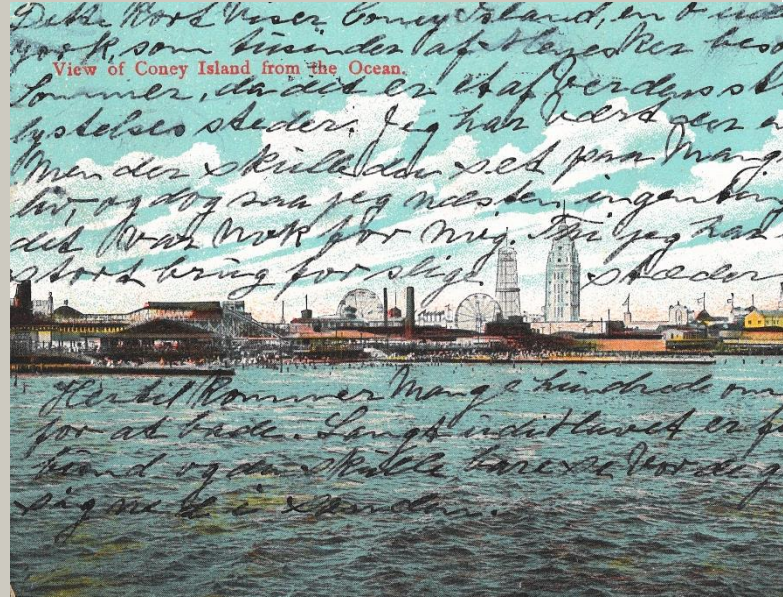 Dette Kort Viser Coney Island, en
york, som tusinder af Mennesker
View of Coney Island from the Ocean.
Sommer, da dit er et af verdens
lystelses steder. Jeg har Vært der
Men der skulle du set paa
liv, og dog saa jeg næsten ingenting
det var Nok for Mig. Thi jeg har
stort brug for slige steder
Hertil Kommer Mange hundrede
for at bade. Langt udi Havet er
bund og du skulle bare se Vor
sig ned i sanden.